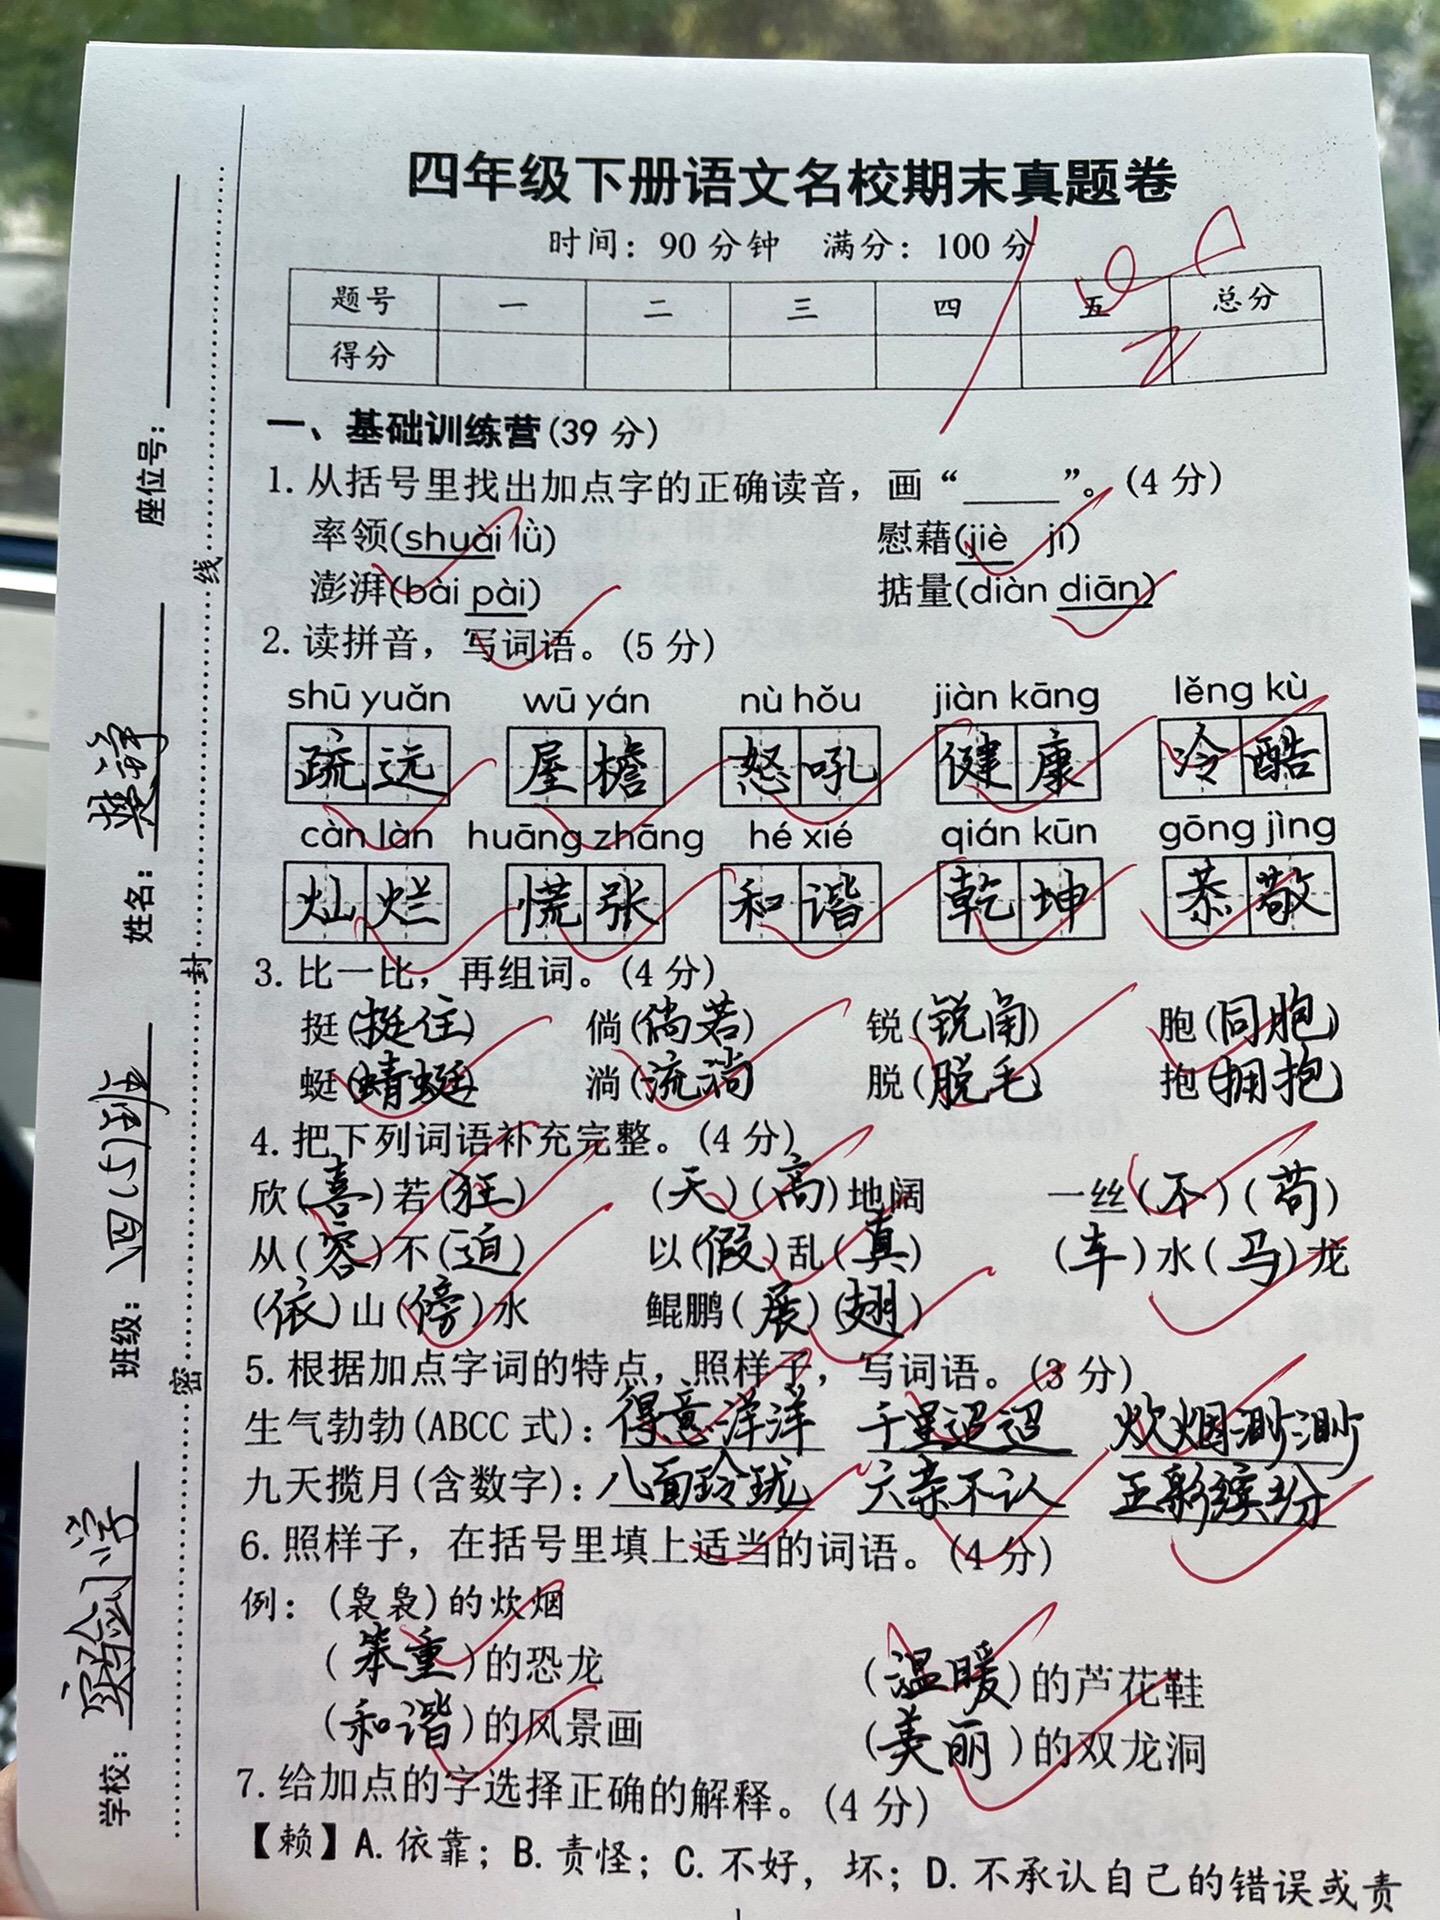 四年级下册语文名校期末真题卷
时间：90分钟 满分：100分
题号 一 二 三 四 五 总分
得分
一、基础训练营(39分)
1.从括号里找出加点字的正确读音，画“_____”。(4分)
率领(shuài lǜ) 慰藉(jiè jí)
澎湃(bài pài) 掂量(diàn diān)
2.读拼音，写词语。(5分)
shū yuǎn wū yán nù hǒu jiàn kāng lěng kù
疏远 屋檐 怒吼 健康 冷酷
càn làn huāng zhāng hé xié qián kūn gōng jìng
灿烂 慌张 和谐 乾坤 恭敬
3.比一比，再组词。(4分)
挺(挺住) 倘(倘若) 锐(锐角) 胞(同胞)
蜓(蜻蜓) 淌(流淌) 脱(脱毛) 抱(拥抱)
4.把下列词语补充完整。(4分)
欣(喜)若(狂) (天)(高)地阔 一丝(不)(苟)
从(容)不(迫) 以(假)乱(真) (车)水(马)龙
(依)山(傍)水 鲲鹏(展)(翅)
5.根据加点字词的特点，照样子，写词语。(3分)
生气勃勃(ABCC式)：得意洋洋 千里迢迢 炊烟渺渺
九天揽月(含数字)：八面玲珑 六亲不认 五彩缤纷
6.照样子，在括号里填上适当的词语。(4分)
例：(袅袅)的炊烟
(笨重)的恐龙 (温暖)的芦花鞋
(和谐)的风景画 (美丽)的双龙洞
7.给加点的字选择正确的解释。(4分)
【赖】A.依靠；B.责怪；C.不好，坏；D.不承认自己的错误或责
1
座位号：
姓名：楚洋
班级：四(5)班
学校：实验小学
密 封 线